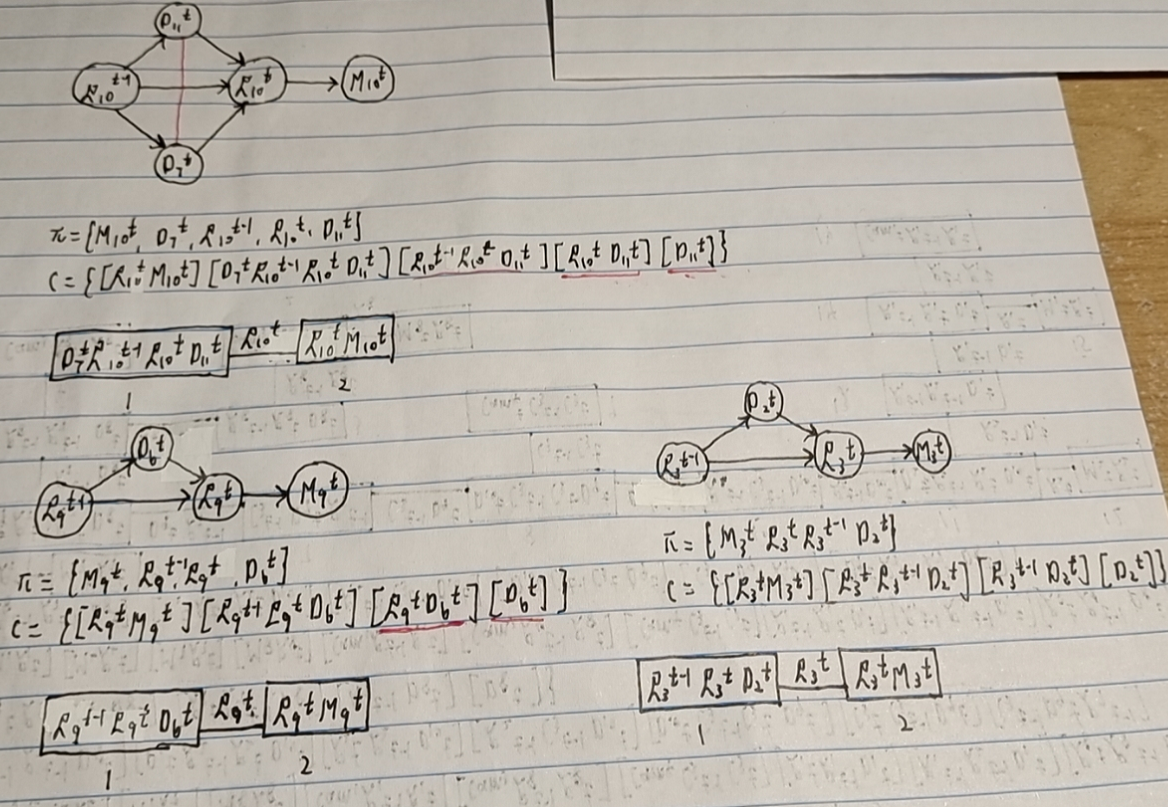 D₁₁ᵗ
R₁₀ᵗ⁻¹ R₁₀ᵗ M₁₀ᵗ
D₇ᵗ
π = {M₁₀ᵗ, D₇ᵗ, R₁₀ᵗ⁻¹, R₁₀ᵗ, D₁₁ᵗ}
C = {[R₁₀ᵗ M₁₀ᵗ] [D₇ᵗ R₁₀ᵗ⁻¹ R₁₀ᵗ D₁₁ᵗ] [R₁₀ᵗ⁻¹ R₁₀ᵗ D₁₁ᵗ] [R₁₀ᵗ D₁₁ᵗ] [D₁₁ᵗ]}
D₇ᵗ R₁₀ᵗ⁻¹ R₁₀ᵗ D₁₁ᵗ R₁₀ᵗ R₁₀ᵗ M₁₀ᵗ
1 2
D₆ᵗ
R₉ᵗ⁻¹ R₉ᵗ M₉ᵗ
π = {M₉ᵗ, R₉ᵗ⁻¹, R₉ᵗ, D₆ᵗ}
C = {[R₉ᵗ M₉ᵗ] [R₉ᵗ⁻¹ R₉ᵗ D₆ᵗ] [R₉ᵗ D₆ᵗ] [D₆ᵗ]}
R₉ᵗ⁻¹ R₉ᵗ D₆ᵗ R₉ᵗ R₉ᵗ M₉ᵗ
1 2
D₂ᵗ
R₃ᵗ⁻¹ R₃ᵗ M₃ᵗ
π = {M₃ᵗ R₃ᵗ R₃ᵗ⁻¹ D₂ᵗ}
C = {[R₃ᵗ M₃ᵗ] [R₃ᵗ R₃ᵗ⁻¹ D₂ᵗ] [R₃ᵗ⁻¹ D₂ᵗ] [D₂ᵗ]}
R₃ᵗ⁻¹ R₃ᵗ D₂ᵗ R₃ᵗ R₃ᵗ M₃ᵗ
1 2